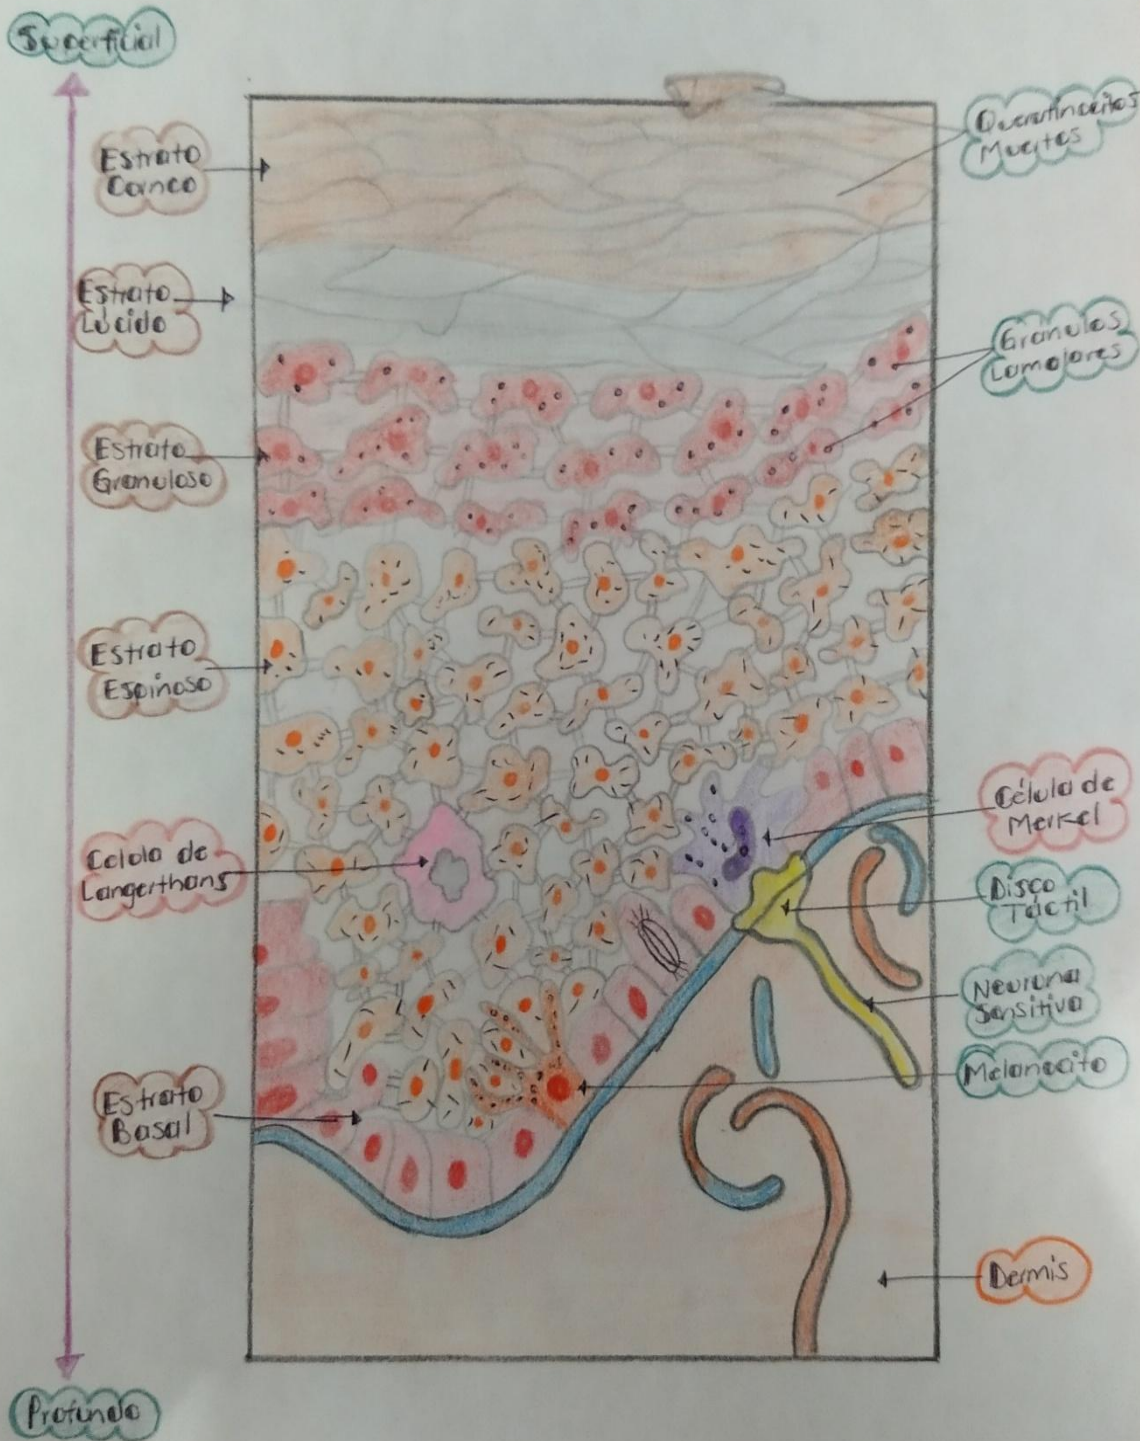 Superficial
Estrato
Corneo
Estrato
Lúcido
Estrato
Granuloso
Estrato
Espinoso
Celula de
Langerthans
Estrato
Basal
Profundo
Querantinocitos
Muertos
Granulos
Lamolares
Célula de
Merkel
Disco
Táctil
Neurona
Sensitiva
Melanocito
Dermis